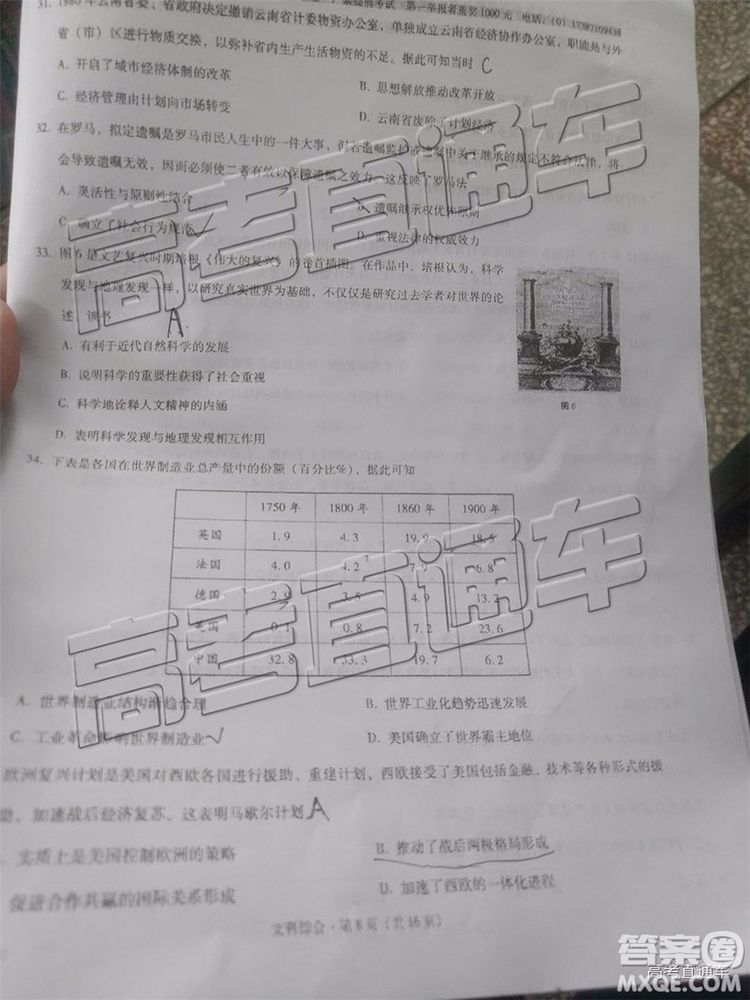 31. 1980年云南省委、省政府决定撤销云南省计委物资办公室，单独成立云南省经济协作办公室，职能是与外
省（市）区进行物质交换，以弥补省内生产生活物质的不足。据此可知当时 C
A. 开启了城市经济体制的改革 B. 思想解放推动改革开放
C. 经济管理由计划向市场转变 D. 云南省废除了计划经济
32. 在罗马，拟定遗嘱是罗马市民人生中的一件大事，但若遗嘱监护或遗嘱中关于继承的规定不符合法律，将
会导致遗嘱无效，因而必须使二者有效以保障遗嘱之效力。这反映了罗马法
A. 灵活性与原则性结合 B. 遗嘱继承权优休原则
C. 确立了社会行为规范 D. 重视法律的权威效力
33. 图6是文艺复兴时期培根《伟大的复兴》的卷首插图。在作品中，培根认为，科学
发现与地理发现一样，以研究真实世界为基础，不仅仅是研究过去学者对世界的论
述。该书 A
A. 有利于近代自然科学的发展
B. 说明科学的重要性获得了社会重视
C. 科学地诠释人文精神的内涵
D. 表明科学发现与地理发现相互作用
图6
34. 下表是各国在世界制造业总产量中的份额（百分比%），据此可知
1750年 1800年 1860年 1900年
英国 1.9 4.3 19.9 18.5
法国 4.0 4.2 7.9 6.8
德国 2.9 3.5 4.9 13.2
美国 0.1 0.8 7.2 23.6
中国 32.8 33.3 19.7 6.2
A. 世界制造业结构渐趋合理 B. 世界工业化趋势迅速发展
C. 工业革命影响世界制造业 D. 美国确立了世界霸主地位
欧洲复兴计划是美国对西欧各国进行援助、重建计划，西欧接受了美国包括金融、技术等各种形式的援
助，加速战后经济复苏。这表明马歇尔计划 A
实质上是美国控制欧洲的策略 B. 推动了战后两极格局形成
促进合作共赢的国际关系形成 D. 加速了西欧的一体化进程
文科综合·第8页（共16页）
高考直通车
高考直通车
答案卷
高考直通车
MXQE.COM